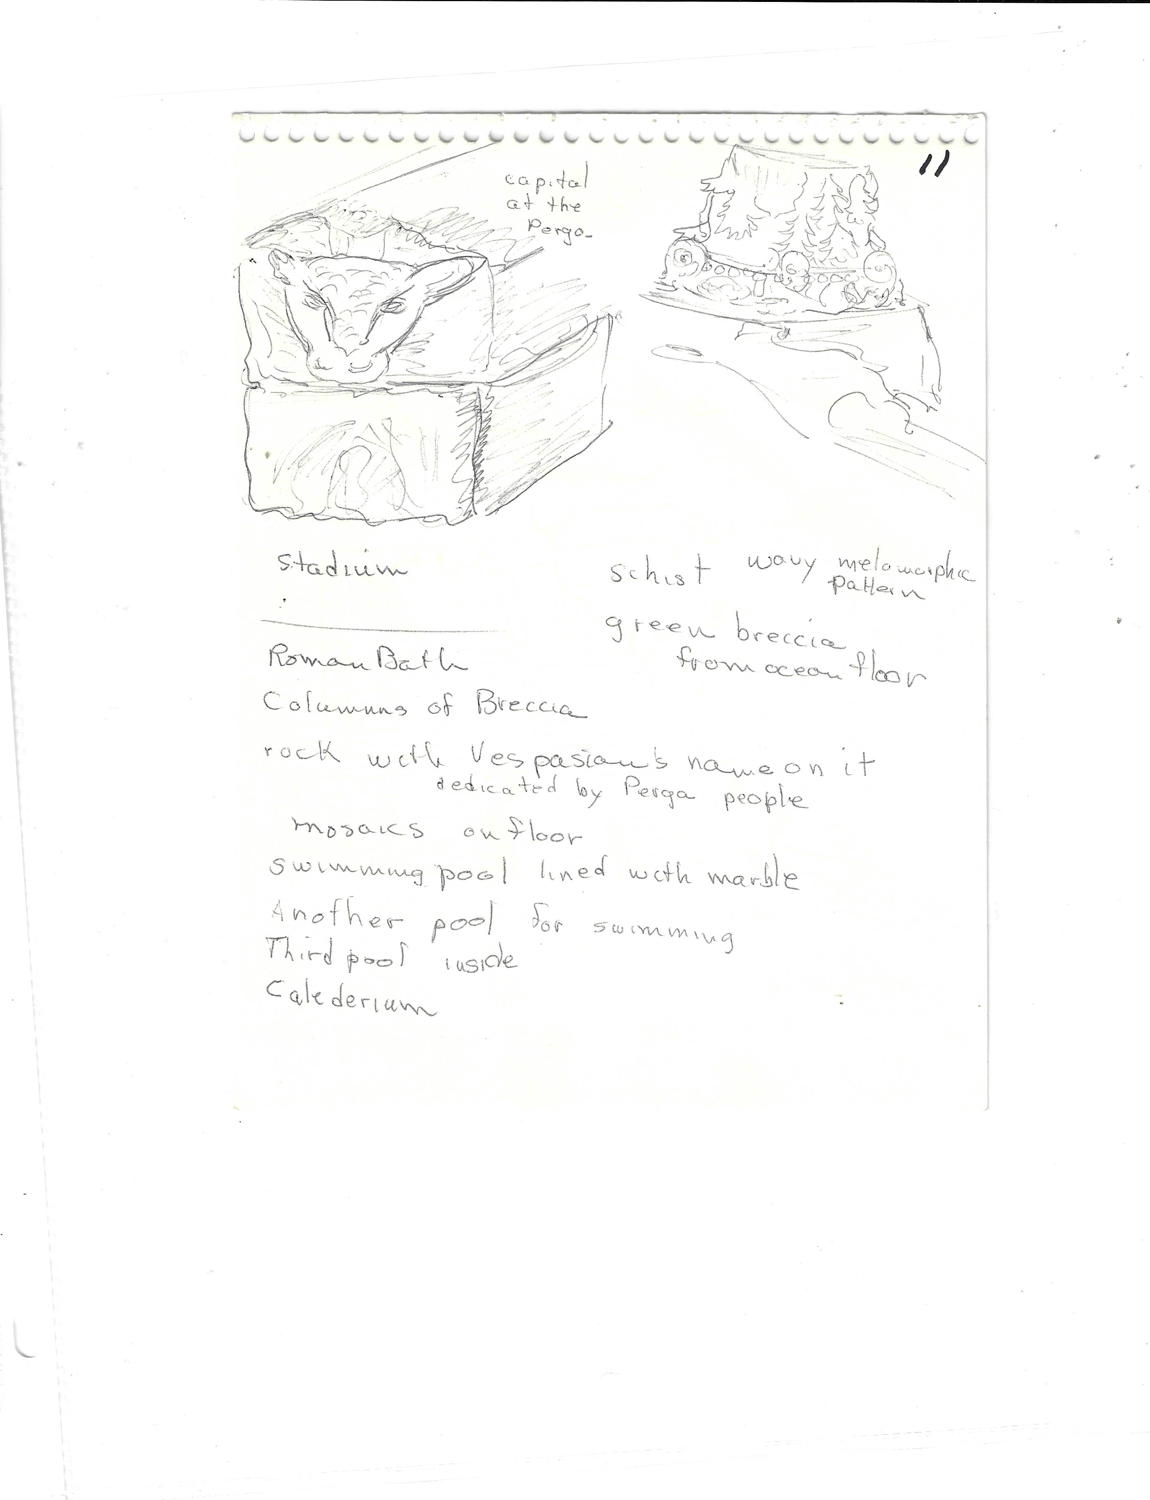 11
capital
at the
Perga
Stadium
schist wavy metamorphic
pattern
green breccia
from ocean floor
Roman Bath
Columns of Breccia
rock with Vespasian's name on it
dedicated by Perga people
mosaics on floor
swimming pool lined with marble
Another pool for swimming
Third pool inside
Calederium